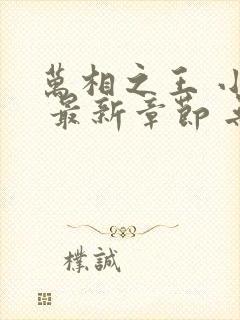 萬相之王 小
最新章節 無
樸誠